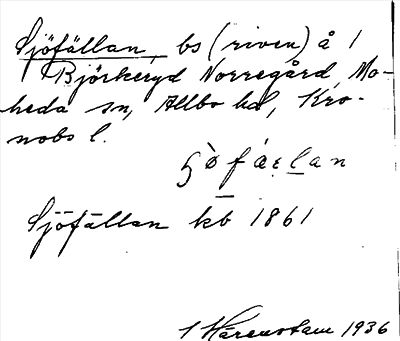 Sjöfällan, bs (riven) å 1
Björkeryd Norregård, Mo-
heda sn, Allbo hd, Kro-
nobs l.
Sjöfällan kb 1861
1936